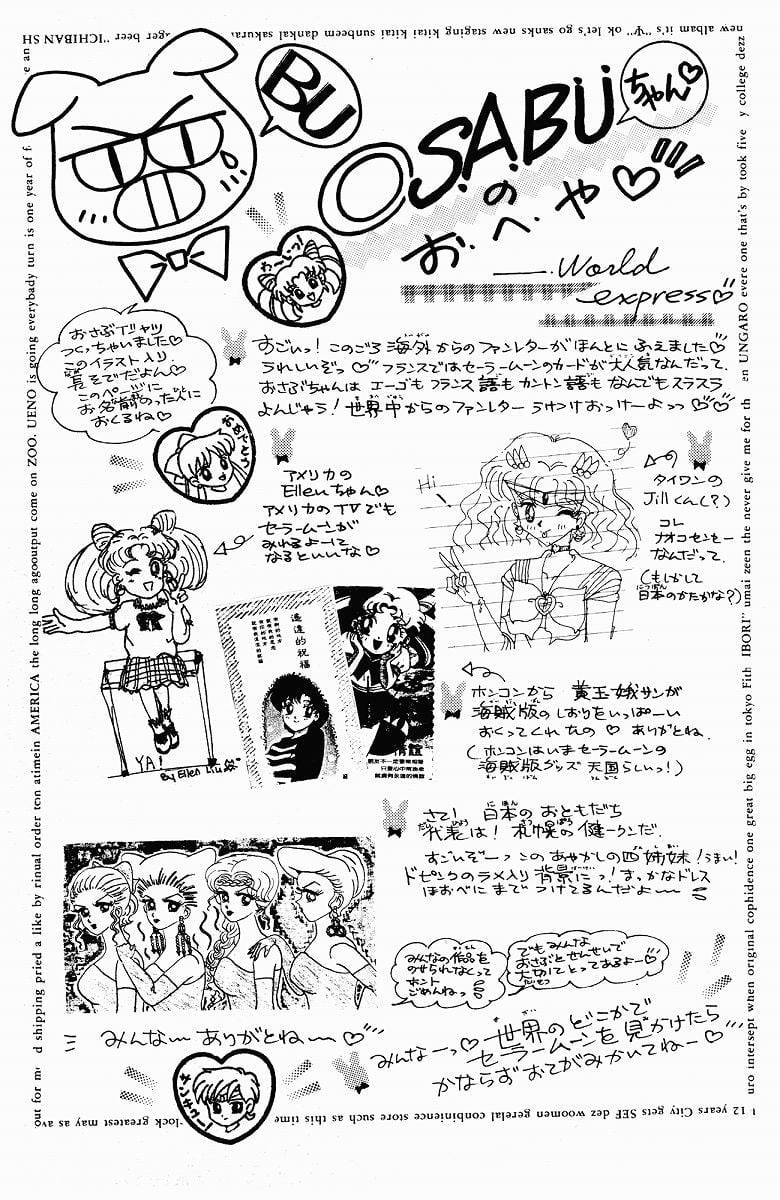 BU
O.S.A.BU
ちゃん♡
の
お・へ・や♡
World
express♡
やーじっ!
おさぶTシャツ
つくっちゃいました♡
このイラスト入り.
長そでだよん♡
このページに
お名前のったヒに
おくるね♡
おめでとう
すごいっ! このごろ海外からのファンレターがほんとにふえました♡
うれしいぞっ♡ フランスではセーラームーンのカードが大人気なんだって.
おさぶちゃんは エーゴもフランス語もカントン語もなんでもスラスラ
よんじゃう! 世界中からのファンレター うけつけおっけーよっっ♡♡
アメリカの
Ellenちゃん♡
アメリカのTVでも
セーラームーンが
みれるよーに
なるといいな♡
Hi
タイワンの
Jillくん(?)
コレ
ナオコセンセー
なんだって.
(もしかして
日本のかたがな?)
遙遠的祝福
情誼
朋友不一定要常相聚
YA!
By Ellen Liu
ホンコンから 黄玉娥サンが
海賊版のしおりをいっぱーい
おくってくれたの♡ ありがとね.
(ホンコンはいまセーラームーンの
海賊版グッズ 天国らしいっ!)
さて! 日本のおともだち
代表は! 札幌の健一クンだ.
すごいぞーっこのあやかしの四姉妹!うまい!
ドピンクのラメ入り背景にっ! まっかなドレス
ほおべにまでつけてるんだよ〜
みんなの作品を
のせられなくって
ホント
ごめんねっ
でもみんな
おさぶとせんせいで
大切にとってあるよー♡
みんな〜ありがとね〜♡
みんなーっ♡世界のどこかで
セーラームーンを見かけたら
かならずおてがみかいてねー♡
new album it's "Ψ" ok let's go sanks new staging kitai kitai sunbeem dankai sakurai
ager beer "ICHIBAN SH
out for
d shipping pried a like by rinual order ten atimein AMERICA the long long agoouput come on ZOO. UENO is going everybady turn is one year of f
y college dezz
en UNGARO evere one that's by took five
uro intersept when original cophidence one great big egg in tokyo Fith
IBORI" umai zeen the never give me for th
12 years City gets SEF dez woomen gerelal conbinience store such as this time
lock greatest may as ave